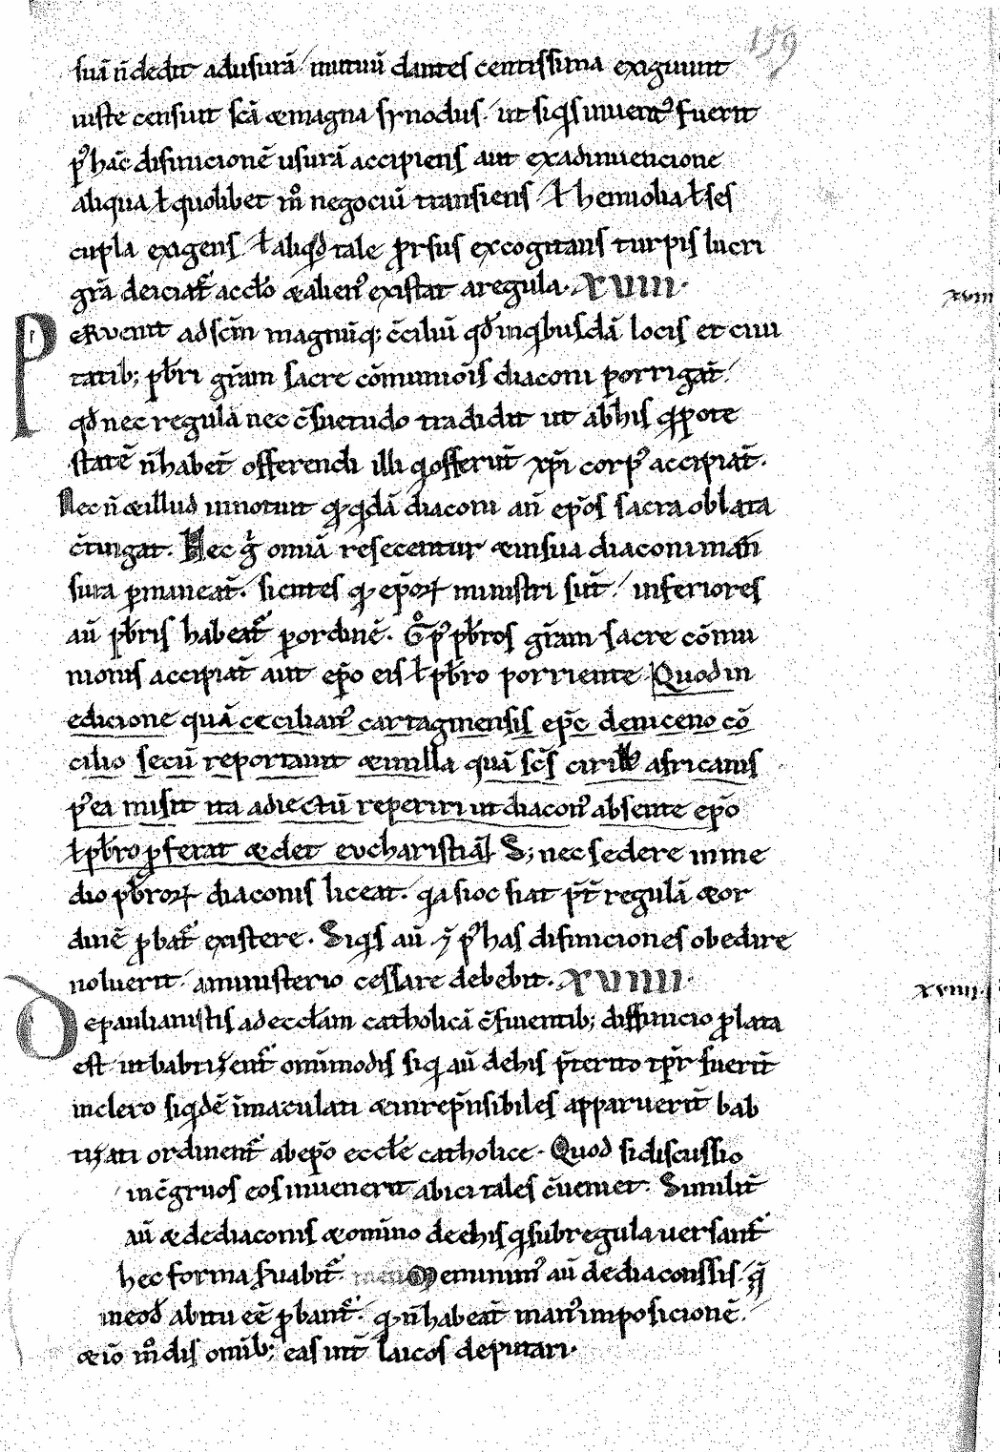 159
suā n̄ dedit ad usurā / mutuū dantes centissima exigunt
iuste censuit sc̄a & magna synodus · ut siqͥs inuent᾽ fuerit
p᾽ hac̄ difinicionē usurā accipiens aut ex adinuencione
aliqua ł quolibet m̊ negociū transiens / ł hemiolia ł ses
cupla exigens / ł aliqͥd tale ꝓrsus excogitans turpis lucri
gr̄a deiciat᾽ a ccl̄o & alien᾽ existat a regula · XVIII ·
xviii
Peruenit ad sc̄m magnūq; c̄ciliū qd̄ in qͥbusdā locis et ciui
tatib; pb̄ri gr̄am sacre cōmunioīs diaconi porrigat̄ /
qd̄ nec regula nec c̄suetudo tradidit ut ab his qͥ pote
statē n̄ habet̄ offerendi illi qͥ offerūt xp̄i corp᾽ accipiat̄ ·
Nec n̄ & illud innotuit qͥ qͥdā diaconi an̄ ep̄os sacra oblata
c̄tingat · Hec g̊ omīa resecentur & in sua diaconi mān
sura ꝑmaneat̄ · sicentes qͥ ep̄oꝝ ministri sūt / inferiores
aū pb̄ris habeat᾽ ꝑ ordinē · G̊ p᾽ pb̄ros gr̄am sacre cōmu
nionis accipiat̄ aut ep̄o eis ł pb̄ro porriente Quod in
edicione quā cecilian᾽ cartaginensis ep̄c de niceno cō
cilio secū reportauit & in illa quā sc̄s cirill᾽ africanis
p᾽ ea misit ita adiectū reperiri ut diacon᾽ absente ep̄o
ł pb̄ro ꝓferat & det eucharistiā S; nec sedere in me
dio pb̄roꝝ diaconis liceat · qͣ si oc fiat p̄t regulā & or
dinē ꝓbat᾽ existere · Siqͥs aū ⁊ p᾽ has difiniciones obedire
noluerit · a ministerio cessare debebit · XVIIII ·
xviiii ·
De paulianistis ad eccl̄am catholicā c̄fuientib; diffinicio ꝓlata
est ut babtizent᾽ omīmodis siqͥ aū de his p̄terito tp̄r fuerīt
in clero siqͥdē īmaculati & inrep̄nsibiles apparuerīt bab
tizati ordinent᾽ ab ep̄o eccl̄e catholice · Quod si discussio
inc̄gruos eos inuenerit abici tales c̄ueniet · Similit̄
aū & de diaconis & omīno de ehis qͥ sub regula uersant᾽
hec forma s̄uabit᾽ · Meminim᾽ aū de diaconissis / qͥ
in eod̄ abitu eē ꝓbant᾽ · qͥ n̄ habeāt man᾽ imposicionē /
& iō m̊dis omīb; eas int̄ laicos deputari ·